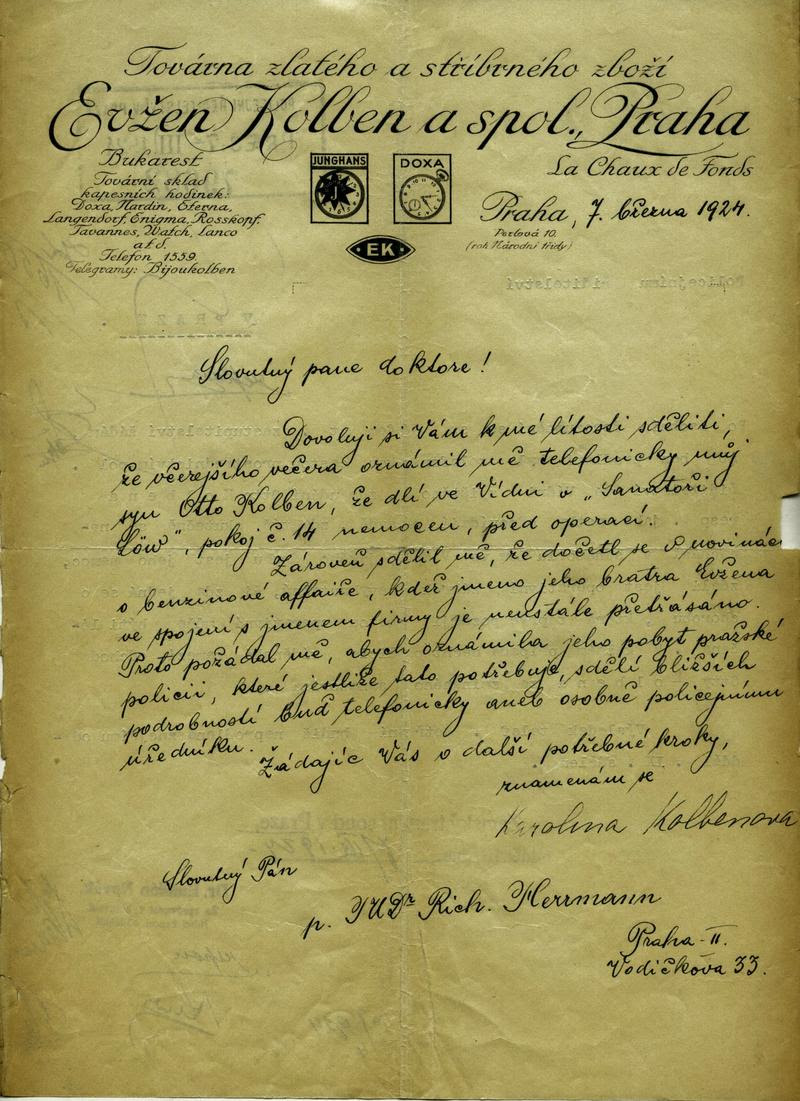 Továrna zlatého a stříbrného zboží
Evžen Kolben a spol., Praha
Bukarest
Tovární sklad
kapesních hodinek:
Doxa, Nardin, Eterna,
Langendorf, Enigma, Rosskopf.
Tavannes, Watch, Lanco
a t d.
Telefon 1559.
Telegramy: Bijoukolben
JUNGHANS
DOXA
EK
La Chaux de Fonds
Praha, 7. března 1924.
Perlová 10.
(roh Národní třídy)
Policejnímu ředitelství
V PRAZE
Slovutný pane doktore!
Dovoluji si Vám k mé lítosti sděliti,
že včerejšího večera oznámil mě telefonicky můj
syn Otto Kolben, že dlí ve Vídni v „Sanatoři
Löw", pokoj č. 14 nemocen, před operací.
Zároveň sdělil mě, že dočetl se v novinác
o benzinové affaiře, kdež jmeno jeho bratra Evžena
ve spojení s jmenem firmy je neustále přetřásáno.
Proto požádal mě, abych oznámila jeho pobyt pražské
policii, které jestliže tato potřebuje, sdělí bližších
podrobností buď telefonicky aneb osobně policejnímu
úředníku.
Žádajíc Vás o další potřebné kroky,
znamenám se
Karolina Kolbenova
Slovutný Pán
p. JUDr Rich. Herrmann
Praha-II.
Vodičkova 33.